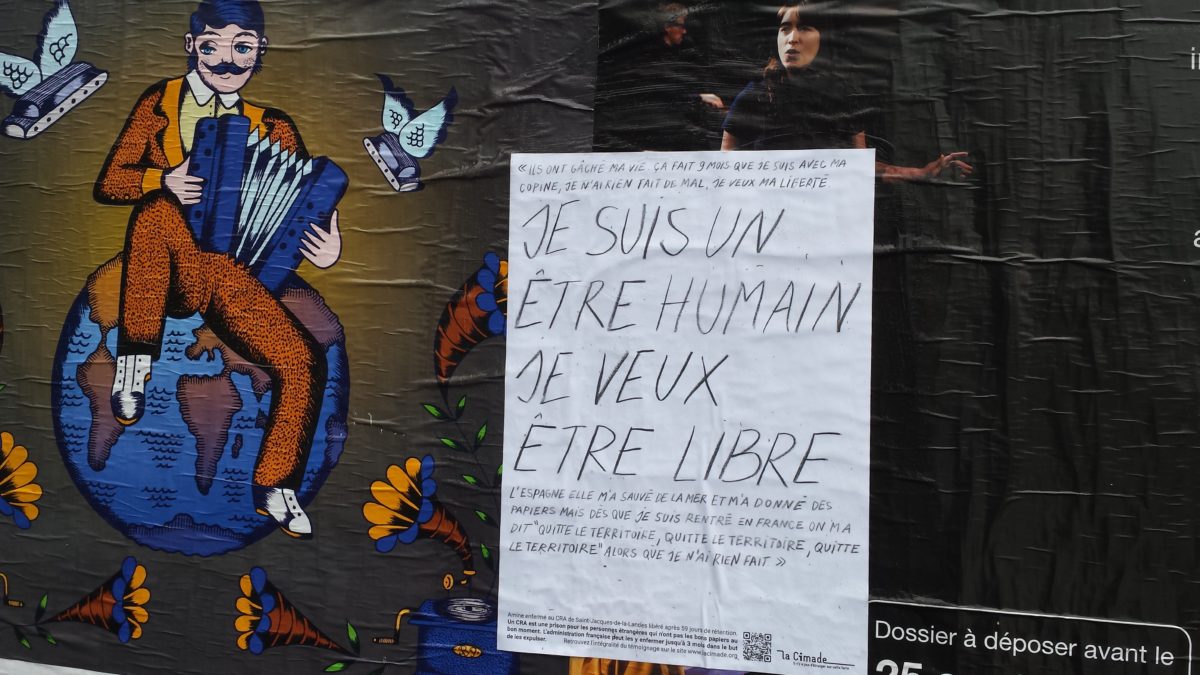 « ILS ONT GÂCHÉ MA VIE. ÇA FAIT 9 MOIS QUE JE SUIS AVEC MA
COPINE, JE N'AI RIEN FAIT DE MAL, JE VEUX MA LIBERTÉ
JE SUIS UN
ÊTRE HUMAIN
JE VEUX
ÊTRE LIBRE
L'ESPAGNE ELLE M'A SAUVÉ DE LA MER ET M'A DONNÉ DES
PAPIERS MAIS DÈS QUE JE SUIS RENTRÉ EN FRANCE ON M'A
DIT "QUITTE LE TERRITOIRE, QUITTE LE TERRITOIRE, QUITTE
LE TERRITOIRE" ALORS QUE JE N'AI RIEN FAIT. »
Amine enfermé au CRA de Saint-Jacques-de-la-Landes libéré après 59 jours de rétention.
Un CRA est une prison pour les personnes étrangères qui n'ont pas les bons papiers au
bon moment. L'administration française peut les y enfermer jusqu'à 3 mois dans le but
de les expulser.
Retrouvez l'intégralité du témoignage sur le site www.lacimade.org
la Cimade
Dossier à déposer avant le
25